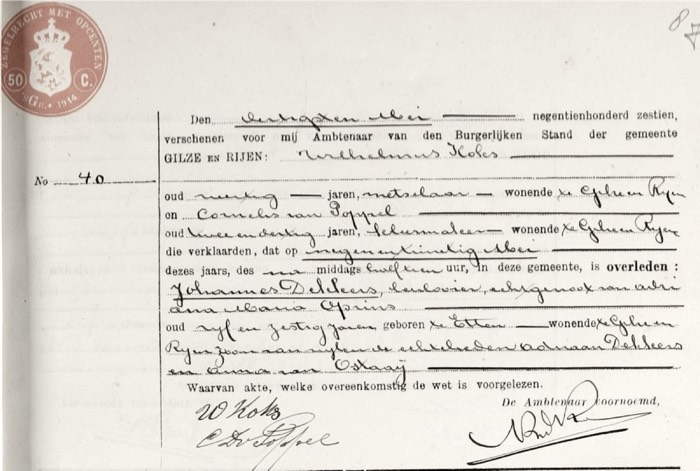 87
ZEGELRECHT MET OPCENTEN
50 C.
1914
Den dertigsten Mei negentienhonderd zestien,
verschenen voor mij Ambtenaar van den Burgerlijken Stand der gemeente
GILZE EN RIJEN: Wilhelmus Koks
No 40
oud veertig jaren, metselaar wonende te Gilze en Ryen
en Cornelis van Poppel
oud twee en dertig jaren, wonende te Gilze en Ryen
die verklaarden, dat op negen en twintig Mei
dezes jaars, des na middags twaalf uur, in deze gemeente, is overleden:
Johannes Dekkers, echtgenoot van Adri
ana Maria Oprins
oud vyf en zestig jaren geboren te Etten wonende te Gilze en
Ryen zoon van wylen de echtelieden Adriaan Dekkers
en Anna van Ostaaÿ
Waarvan akte, welke overeenkomstig de wet is voorgelezen.
De Ambtenaar voornoemd,
W Koks
C v Poppel